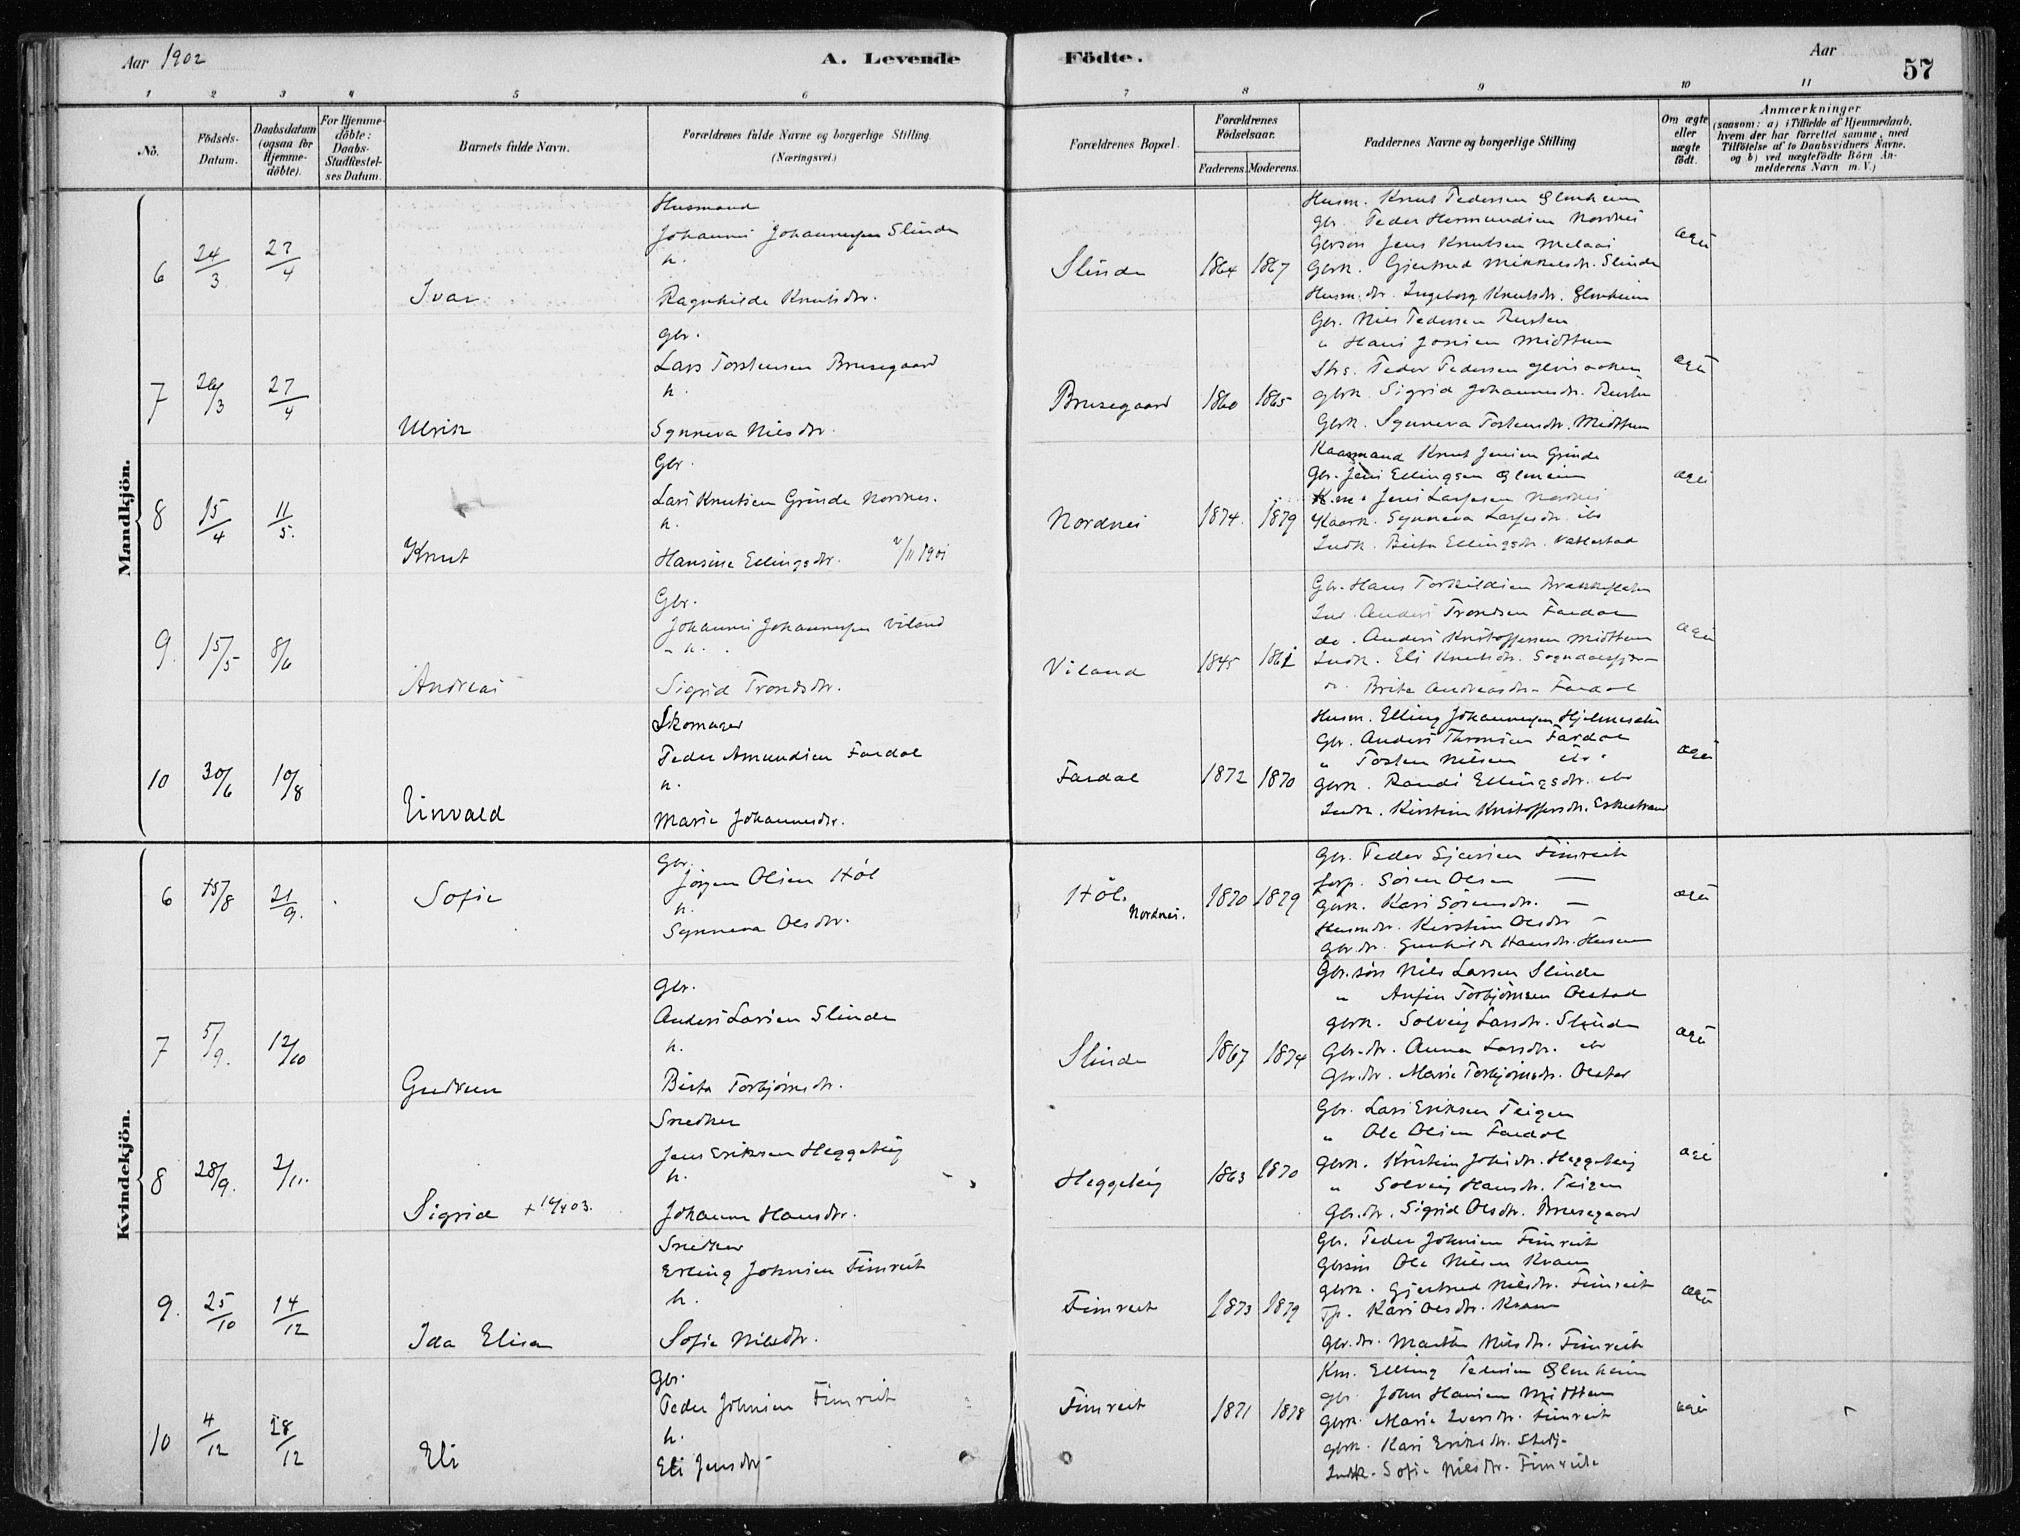 Aar 1902
A. Levende
Födte.
Aar
57
1 2 3 4 5 6 7 8 9 10 11
No.
Födsels-Datum.
Daabsdatum (ogsaa for Hjemme-döbte).
For Hjemme-döbte: Daabs-Stadfæstel-ses Datum.
Barnets fulde Navn.
Forældrenes fulde Navne og borgerlige Stilling. (Næringsvei.)
Forældrenes Bopæl.
Forældrenes Födselsaar.
Faderens. Moderens.
Faddernes Navne og borgerlige Stilling
Om ægte eller uægte födt.
Anmærkninger
(saasom: a) i Tilfælde af Hjemmedaab, hvem der har forrettet samme, med Tilföielse af to Daabsvidners Navne, og b) ved uægtefödte Börn An-melderens Navn m. V.)
Mandkjön.
6 24/3 27/4 Ivar
Husmand
Johannes Johannessen Slinde
h.
Ragnhilde Knutsdtr.
Slinde 1864 1867
Husm. Knut Pedersen Glenheim
Gbr. Peder Hermundsen Nordnes
Gbrsøn Jens Knutsen
Gbrk. Gjertrud Mikkelsdr. Slinde
Husm.dr. Ingeborg Knutsdr. Glenheim
ægte
7 26/3 27/4 Ulrik
Gbr.
Lars Torstensen Brusegaard
h.
Synneva Nilsdtr.
Brusegaard 1860 1865
Gbr. Nils Pedersen Rusten
" Hans Josien Midttun
Peder Pedersen
Gbrk. Sigrid Johannesdr. Rusten
Gbrk. Synneva Tostensdr. Midttun
ægte
8 15/4 11/5. Knut
Gbr.
Lars Knutsen Grinde Nordnes.
h.
Hansine Ellingsdtr. 2/11 1901
Nordnes 1874. 1879
Kaarmand Knut Jensen Grinde
Gbr. Jens Ellingsen Glenheim
K.m. Jens Larssen Nordnes
Kaark. Synneva Larsesdr. ibr
Indk. Birta Ellingsdr. Vallestad
ægte
9. 15/5 8/6 Andreas
Gbr.
Johannes Johannessen Viland
h.
Sigrid Trondsdtr.
Viland 1845 1861
Gbr. Hans Torkildsen
Ind. Anders Trondsen Fardal
do. Anders Kristoffersen Midttun
Indk. Eli Knutsdr.
Brita Andreasdr. Fardal
ægte
10 30/6 10/8 Einvald
Skomager
Peder Amundsen Fardal
h.
Marie Johannesdr.
Fardal 1872 1870
Husm. Elling Johannessen
Gbr. Anders Thronsen Fardal
" Tosten Nilsen ibr.
Gbrk. Randi Ellingsdr. ibr
Indk. Kirstine Kristoffersdr. Eskestrand
ægte
Kvindekjön.
6 15/8 21/9. Sofie
Gbr.
Jörgen Olsen Höl
h.
Synneva Olsdtr.
Höl. Nordnes. 1870 1879
Gbr. Peder Fimreit
Sören Olsen —
Gbrk. Kari Sörensdr. —
Husmdr. Kirstine Olsdr —
Gbr.dr. Gunhilde Hansdr. Husum
ægte
7 5/9. 12/10 Gudrun
Gbr.
Anders Larsen Slinde
h.
Birta Torbjörnsdr.
Slinde 1867 1874
Gbr.søn Nils Larsen Slinde
" Anfin Torbjörnsen Olstad
Gbrk. Solveig Larsdr. Slinde
Gbr.dr. Anna Larsdr. ibr
Gbr.dr. Marie Torbjörnsdr. Olstad
ægte
8 28/9. 2/11. Sigrid + 14/4 03.
Snedker
Jens Eriksen Heggeteig
h.
Johanne Hansdtr.
Heggeteig 1863 1870
Gbr. Lars Eriksen Teigen
" Ole Olsen Fardal
Gbrk. Kristine Johsdr. Heggeteig
" Solveig Hansdr. Teigen
Gbr.dr. Sigrid Olsdr. Brusegaard
ægte
9. 25/10 14/12 Ida Elisa
Snedker
Erling Johnsen Fimreit
h.
Sofie Nilsdtr.
Fimreit 1873 1879
Gbr. Peder Johnsen Fimreit
Gbrsøn Ole Nilsen Kvam
Gbrk. Gjertrud Nilsdtr. Fimreit
Tp. Kari Olsdr. Kvam
Gbr.dr. Marthe Nilsdtr. Fimreit
ægte
10 4/12 28/12 Eli
Gbr.
Peder Johnsen Fimreit
h.
Eli Jensdtr
Fimreit 1871 1878
Km. Elling Pedersen Glenheim
Gbr John Hansen Midttun
Gbrk. Marie Iversdr. Fimreit
Gbrk. Kari Eriksdr. Stedj.
Indk. Sofie Nilsdtr. Fimreite
ægte